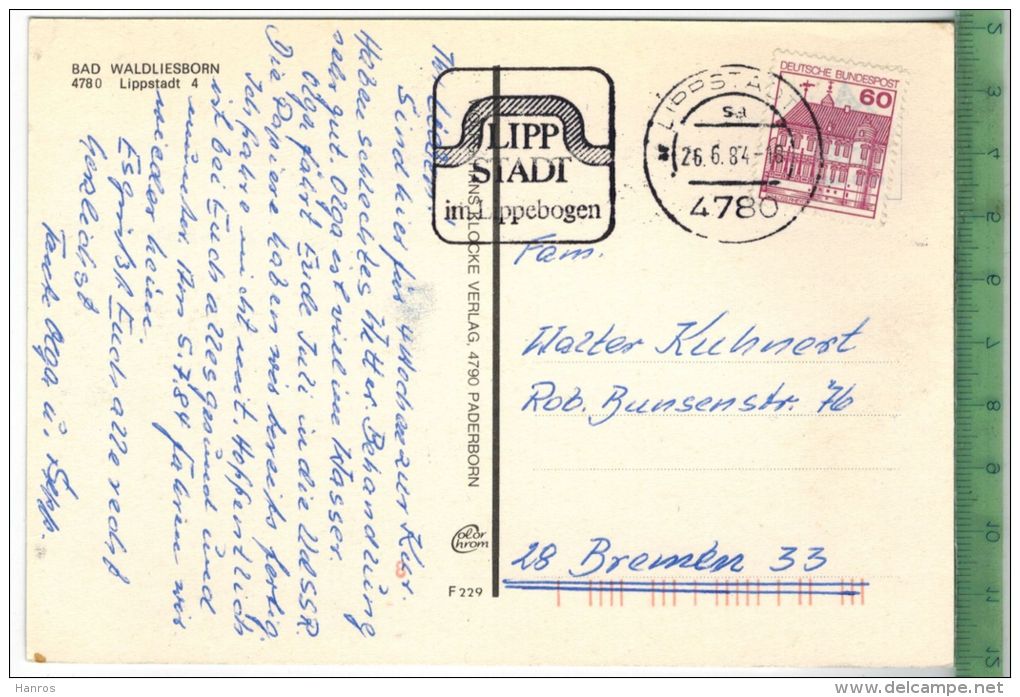 BAD WALDLIESBORN
4780 Lippstadt 4
Ihr Lieben!
Sind hier für 4 Wochen zur Kur.
Haben schlechtes Wetter. Behandlung
sehr gut. Olga ist viel im Wasser.
Olga fährt Ende Juli in die UdSSR.
Die Papiere haben wir bereits fertig.
Ich fahre nicht mit. Hoffentlich
ist bei Euch alles gesund und
munter. Am 5.7.84 fahren wir
wieder heim.
Es grüßt Euch alle recht
herzlichst
Tante Olga u. Sepp.
HANS KLOCKE VERLAG, 4790 PADERBORN
Color
Chrom
F 229
LIPP
STADT
im Lippebogen
LIPPSTADT 1
sa
26.6.84-16
4780
DEUTSCHE BUNDESPOST
60
Fam.
Walter Kuhnert
Rob. Bunsenstr. 76
28 Bremen 33
2
3
4
5
6
7
8
9
10
11
12
Hanros
www.delcampe.net